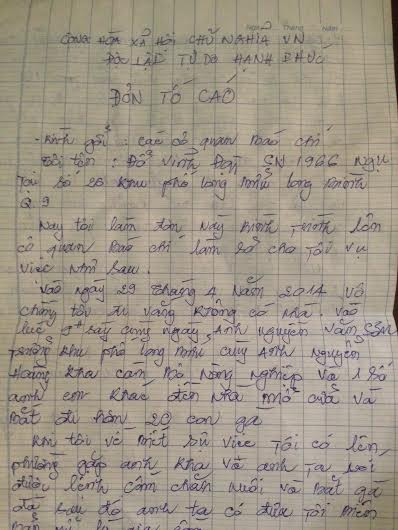 Ngày Tháng Năm
CỘNG HÒA XÃ HỘI CHỦ NGHĨA VN
ĐỘC LẬP TỰ DO HẠNH PHÚC
ĐƠN TỐ CÁO
- Kính gởi : các cơ quan báo chí
Tôi tên : Đỗ Vinh SN 1966 Ngụ
Tại số 26 khu phố Long Bình
Q 9
Nay tôi làm đơn này kính trình lên
cơ quan báo chí làm cho tôi vụ
việc như sau.
Vào ngày 29 tháng 4 năm 2014 vợ
chồng tôi đi vắng không có nhà. vào
lúc cùng ngày, Anh Nguyễn Văn Sơn
trưởng khu phố cùng Anh Nguyễn
Hoàng Kha cán bộ nông nghiệp và 1 số
anh em khác đến nhà mở cửa và
bắt đi hơn 20 con gà
khi tôi về biết sự việc tôi có lên
phường gặp anh Kha và anh ta nói
được lệnh cấm chăn nuôi và bắt gà
đi sau đó anh ta có đưa tôi